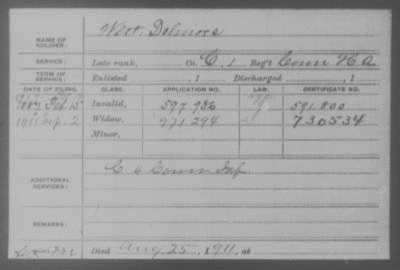 NAME OF SOLDIER: West. Delmore
SERVICE: Late rank, Co. C. 1 Reg't Conn H. A
TERM OF SERVICE: Enlisted , 1 Discharged , 1
DATE OF FILING. CLASS. APPLICATION NO. LAW. CERTIFICATE NO.
Feb. 15 Invalid, 597 936 591.800
1911 Sep. 2 Widow, 971 294 730534
Minor,
ADDITIONAL SERVICES: C. H Conn Inf
REMARKS:
Died Aug. 25, 1911, at